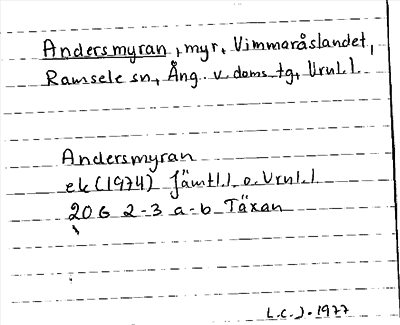 Andersmyran, myr, Vimmaråslandet,
Ramsele sn, Ång. v. doms. tg, Vrml.l.
Andersmyran
ek (1974) Jämtl.l. o. Vrml.l
20G 2-3 a-b Täxan
L.C.J. 1977